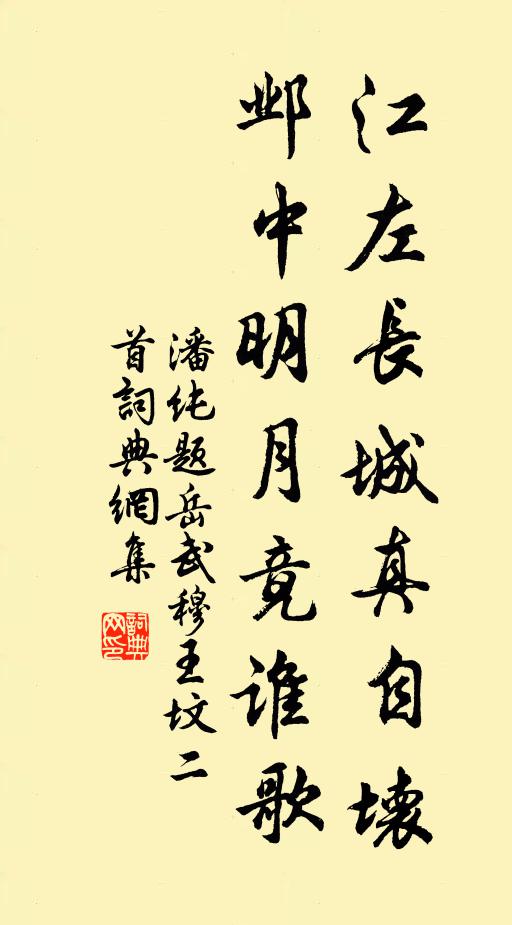 江左長城真自壞
邺中明月竟誰歌
潘纯题岳武穆王坟二
首詞典網集
詞典
网印